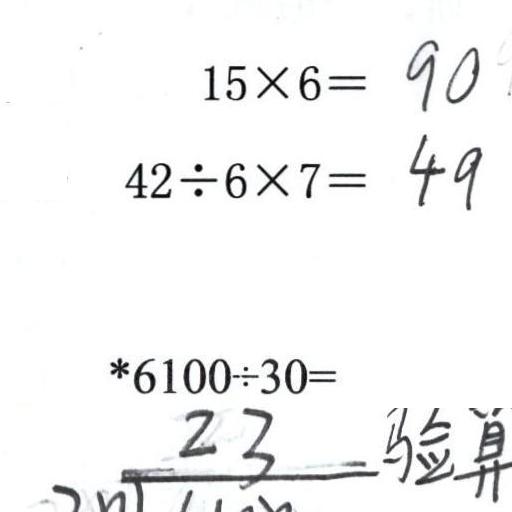 15×6= 90
42÷6×7= 49
*6100÷30=
23 验算